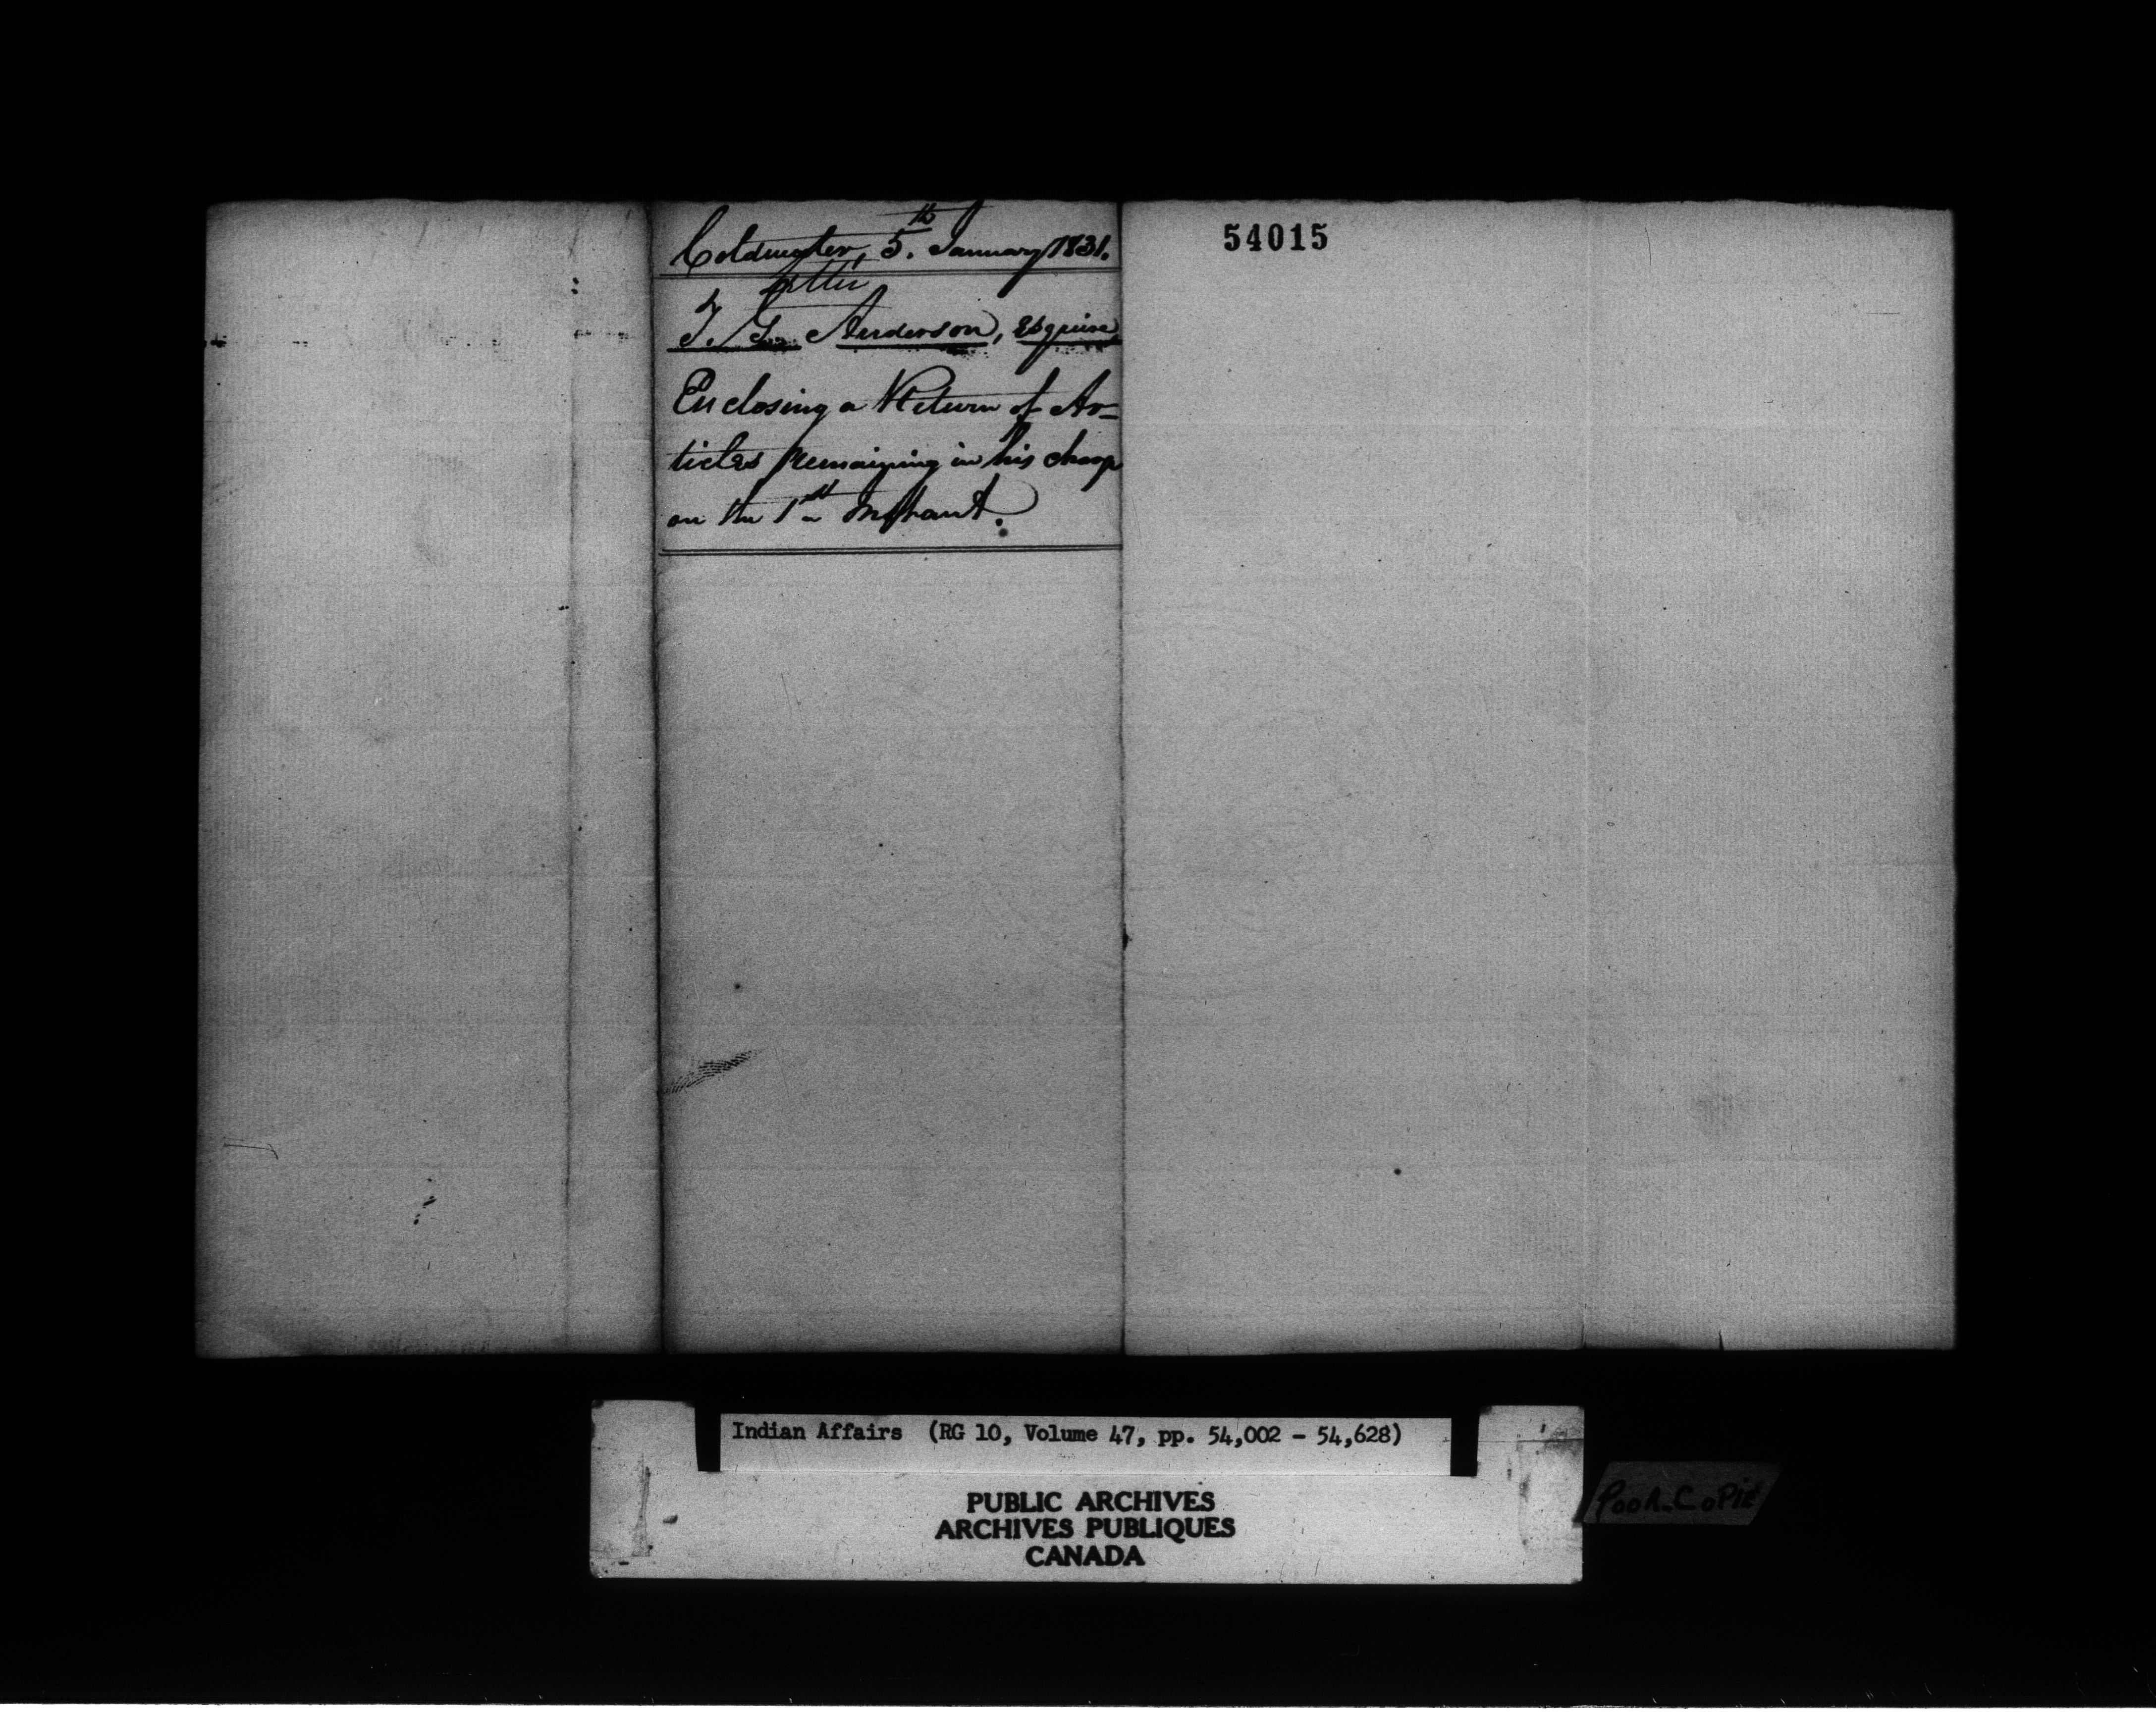 Coldwater, 5th January 1831.
Letter
T. G. Anderson, Esquire
Enclosing a Return of Ar-
ticles remaining in his charge
on the 1st Instant.
54015
Indian Affairs (RG 10, Volume 47, pp. 54,002 - 54,628)
PUBLIC ARCHIVES
ARCHIVES PUBLIQUES
CANADA
POOR COPIE